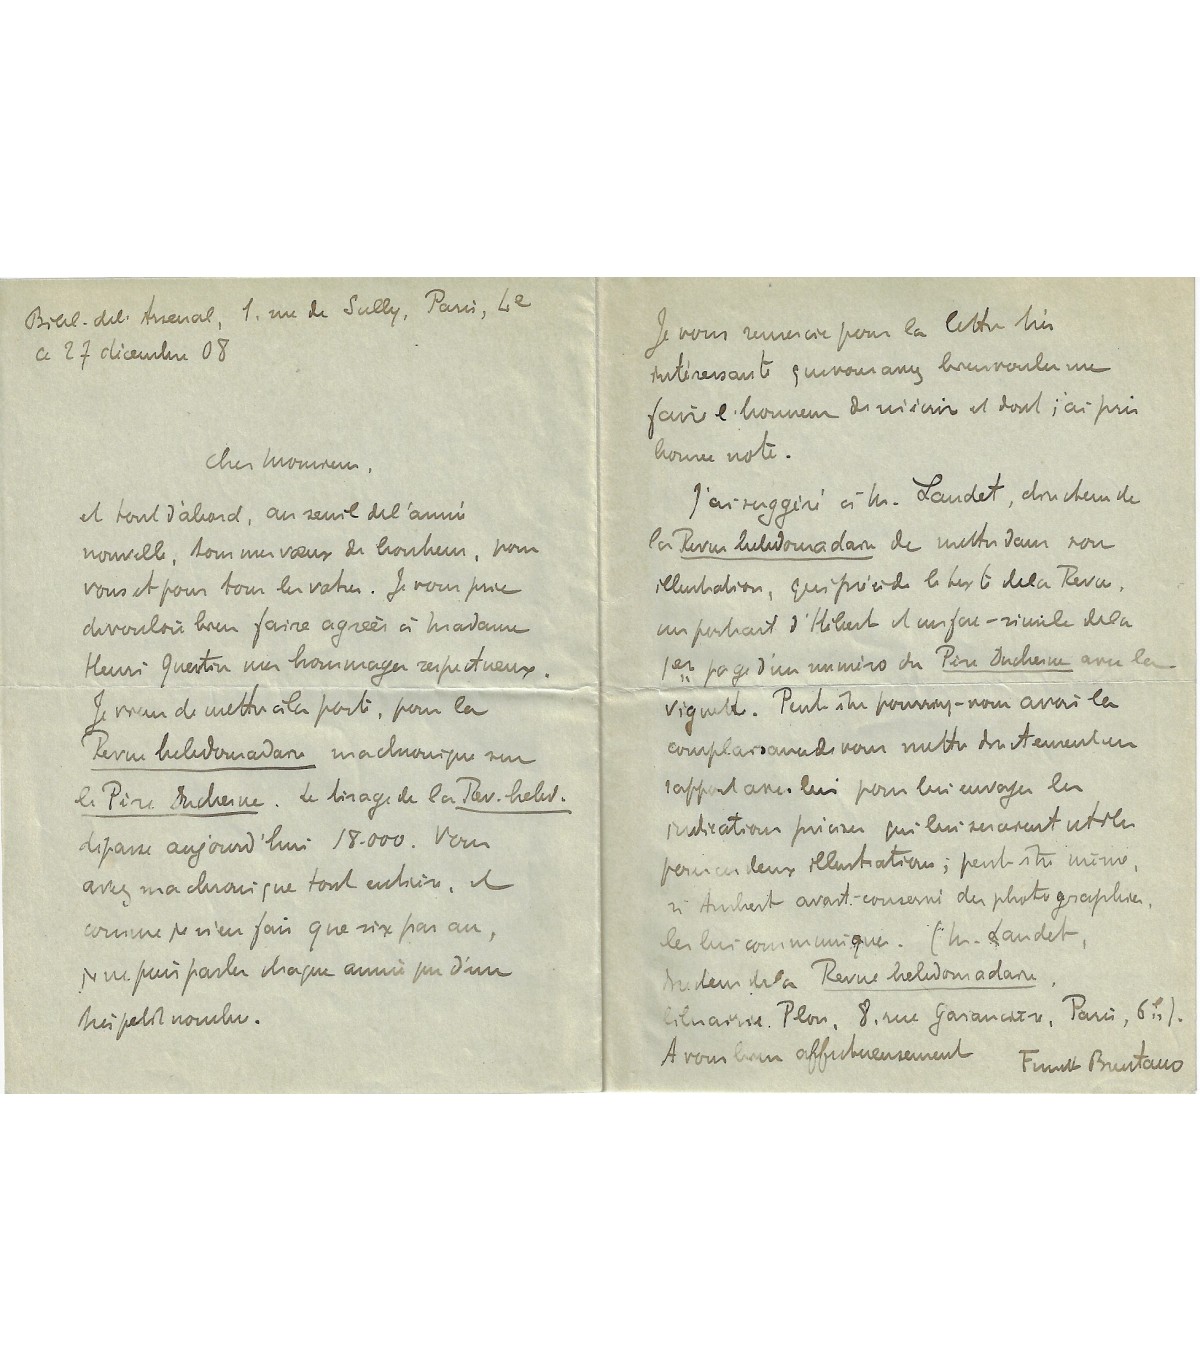 Bibl. de l'Arsenal, 1. rue de Sully, Paris, 4e
ce 27 décembre 08
Cher Monsieur,
et tout d'abord, au seuil de l'année
nouvelle, tous mes vœux de bonheur, pour
vous et pour tous les vôtres. Je vous prie
de vouloir bien faire agréer à Madame
Henri Quentin mes hommages respectueux.
Je viens de mettre à la poste, pour la
Revue hebdomadaire ma chronique sur
le Père Duchesne. Le tirage de la Rev. hebd.
dépasse aujourd'hui 18.000. Vous
avez ma chronique tout entière, et
comme je n'en fais que six par an,
je ne puis parler chaque année que d'un
très petit nombre.
Je vous remercie pour la lettre très
intéressante que vous avez bien voulu me
faire l'honneur de m'écrire et dont j'ai pris
bonne note.
J'ai suggéré à M. Laudet, directeur de
la Revue hebdomadaire de mettre dans son
illustration, qui précède le texte de la Revue,
un portrait d'Hébert et un fac-simile de la
1er page d'un numéro du Père Duchesne avec la
vignette. Peut-être pourriez-vous avoir la
complaisance de vous mettre directement en
rapport avec lui pour lui envoyer les
indications précises qui lui seraient utiles
pour ces deux illustrations; peut-être même,
si Aubert avait conservé des photographies,
les lui communiquer. (M. Laudet,
directeur de la Revue hebdomadaire,
librairie Plon, 8, rue Garancière, Paris, 6e).
A vous bien affectueusement Funck Brentano